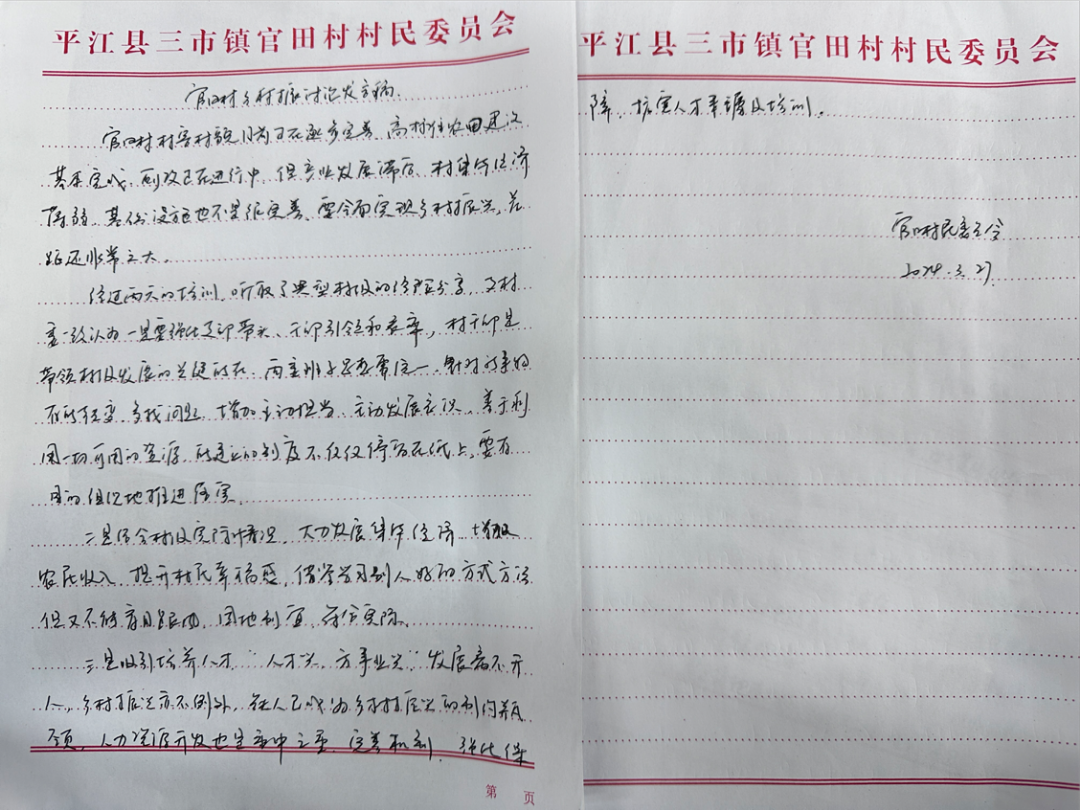 平江县三市镇官田村村民委员会
官田村乡村振兴讨论发言稿
官田村村容村貌目前正在逐步完善、高标准农田建设
基本完成,厕改已在进行中,但产业发展滞后,村集体经济
薄弱,基础设施也不是很完善,要全面实现乡村振兴,差
距还非常之大。
经过两天的培训,听取了典型村级的经验分享,支村
委一致认为一是要强化支部带头、干部引领和表率,村干部是
带领村级发展的关键所在,两套班子思想需统一,针对
存在的 多找问题,增加主动担当、主动发展意识,善于利
用一切可用的资源,所建立的制度不仅仅停留在纸上,要有
目的组织地推进落实。
二是结合村级实际情况,大力发展集体经济,增收
农民收入,提升村民幸福感,借鉴学习别人好的方式方法
但又不能盲目跟风,因地制宜,符合实际。
三是吸引培养人才“人才兴,方事业兴”,发展离不开
人,乡村振兴亦不例外,缺人已成为乡村振兴的制约瓶
颈,人力资源开发也是重中之重,完善机制,强化保
第 页
平江县三市镇官田村村民委员会
障,抗实人才来源及培训。
官田村民委会
2024.3.27